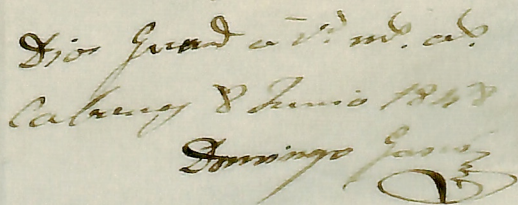 Dios Guard a V. ms. as.
Cabreny 8 Junio 1848
Domingo